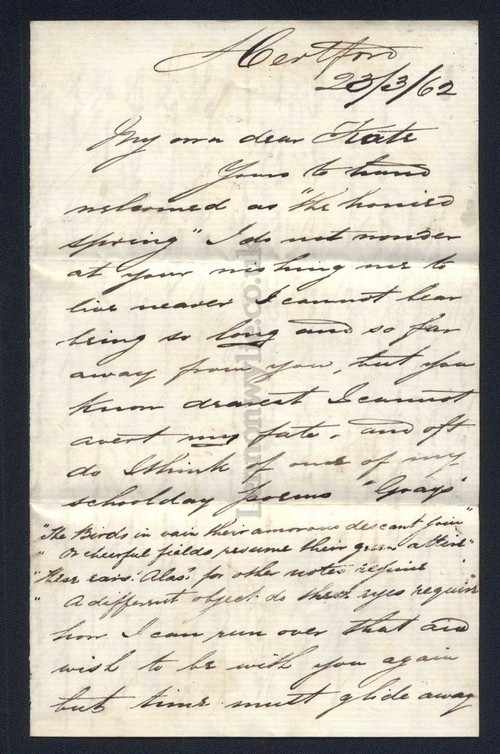 Hertford
23/3/62
My own dear Kate
Yours to hand
welcomed as "the honied
spring" I do not wonder
at your wishing me to
live nearer I cannot bear
being so long and so far
away from you, but you
know dearest I cannot
avert my fate, and oft
do I think of one of my
schoolday poems "Grays"
"The Birds in vain their amorous descant join"
" Or cheerful fields resume their green attire"
"These ears: Alas! for other notes repine "
" A different object do these eyes require
how I can run over that and
wish to be with you again
but time must glide away